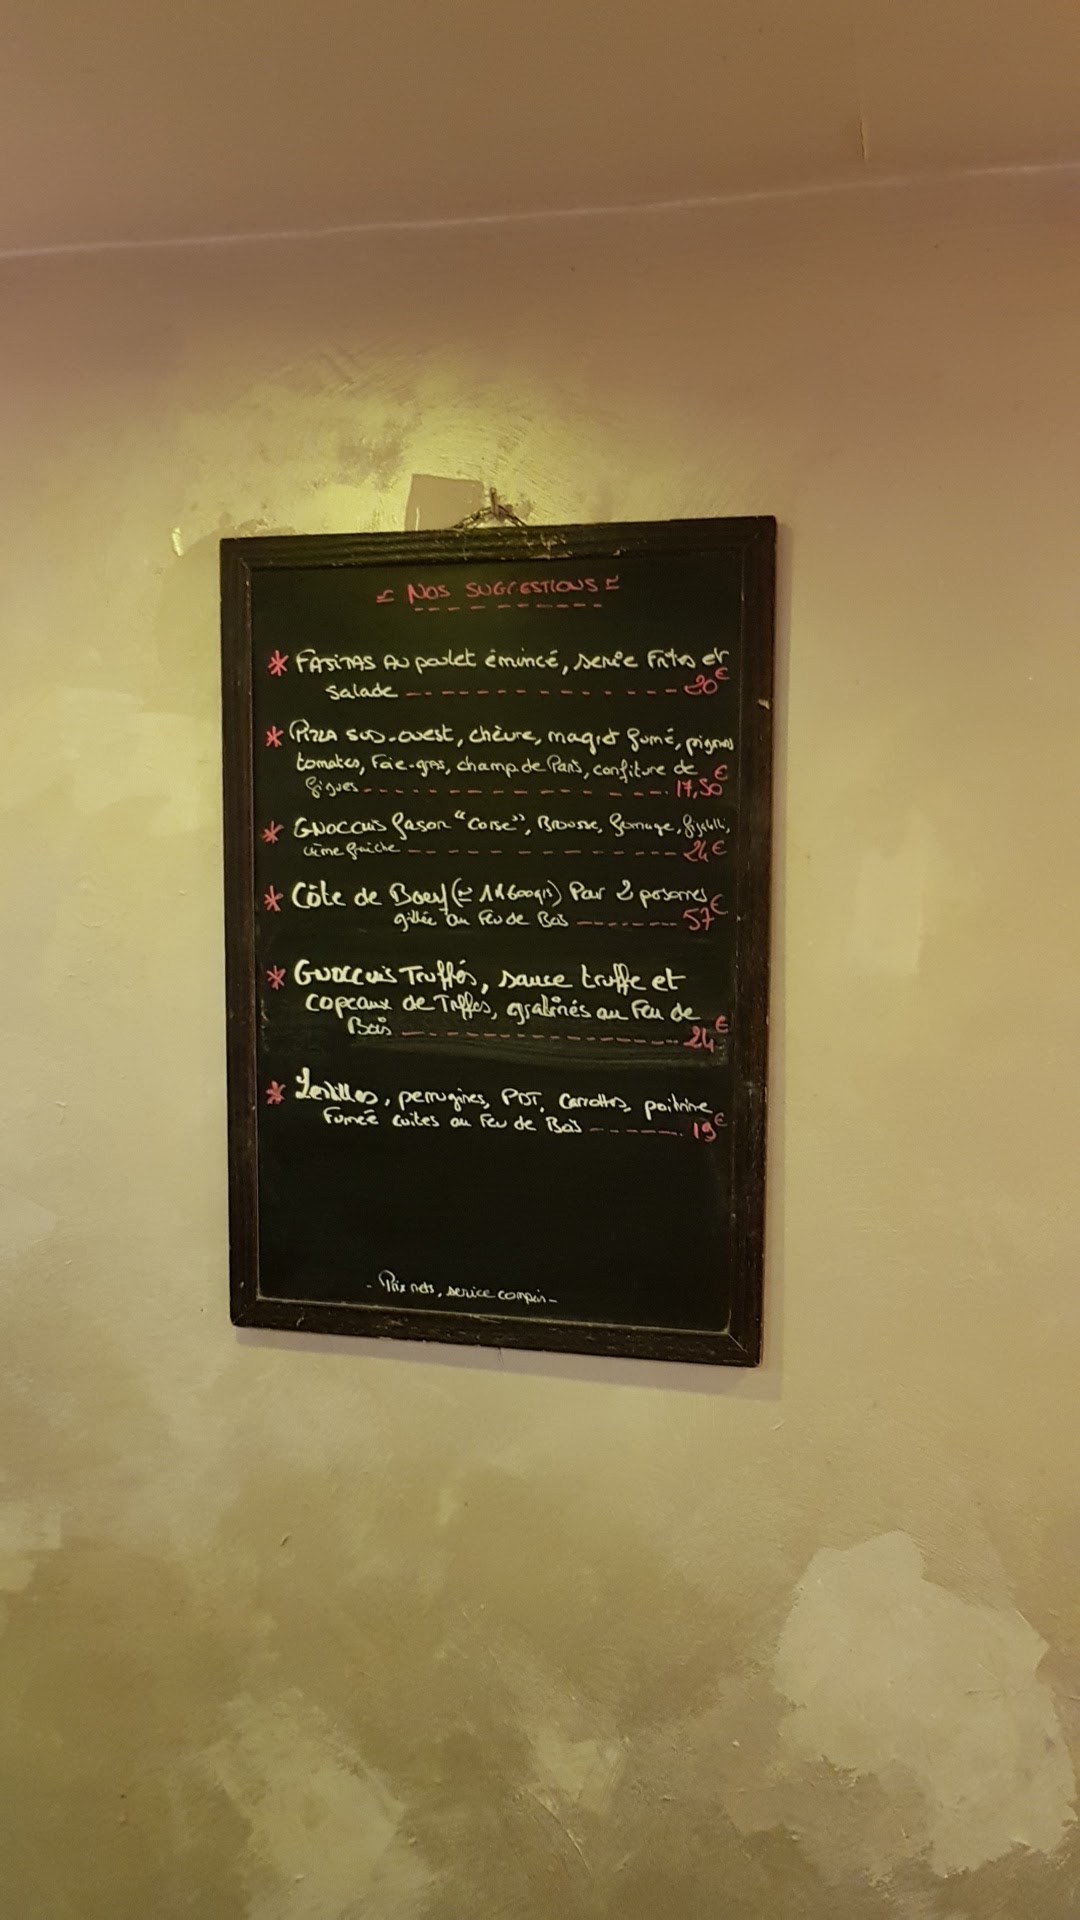 Nos SUGGESTIONS
* FAJITAS Au poulet émincé, servie Frites et
salade ---------- 20€
* Pizza SUD-ouest, chèvre, magret fumé, pignons
tomates, Foie-gras, champ de Paris, confiture de
figues ---------- 17,50€
* GNOCCHIS façon "Corse", Brousse, fromage, figatelli,
crème fraiche ---------- 24€
* Côte de Boeuf (≃ 1K600grs) Pour 2 personnes
grillée au Feu de Bois ------- 57€
* GNOCCHIS Truffés, sauce truffe et
copeaux de Truffes, gratinés au Feu de
Bois ---------- 24€
* Lentilles, perrugines, PDT, Carrottes, poitrine
Fumée cuites au Feu de Bois ------ 19€
- Prix nets, service compris -